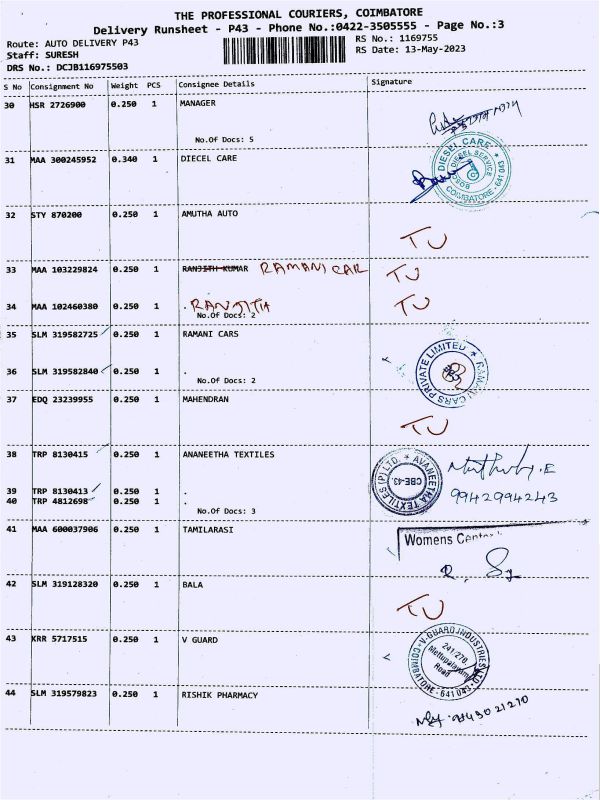 THE PROFESSIONAL COURIERS, COIMBATORE
Delivery Runsheet - P43 - Phone No.:0422-3505555 - Page No.:3
Route: AUTO DELIVERY P43
RS No.: 1169755
Staff: SURESH
RS Date: 13-May-2023
DRS No.: DCJB116975503
S No Consignment No Weight PCS Consignee Details Signature
30 HSR 2726900 0.250 1 MANAGER
No.Of Docs: 5
31 MAA 300245952 0.340 1 DIECEL CARE
DIESEL CARE
DIESEL SERVICE
BOSCH
COIMBATORE - 641 043
32 STY 870200 0.250 1 AMUTHA AUTO
TU
33 MAA 103229824 0.250 1 RANJITH KUMAR RAMANI CAR TU
34 MAA 102460380 0.250 1 . RANJITH TU
No.Of Docs: 2
35 SLM 319582725 0.250 1 RAMANI CARS
RAMANI CARS PRIVATE LIMITED
36 SLM 319582840 0.250 1 .
No.Of Docs: 2
37 EDQ 23239955 0.250 1 MAHENDRAN
TU
38 TRP 8130415 0.250 1 ANANEETHA TEXTILES
AVANEETHA TEXTILES (P) LTD.
CBE-43.
39 TRP 8130413 0.250 1 .
9942994243
40 TRP 4812698 0.250 1 .
No.Of Docs: 3
41 MAA 600037906 0.250 1 TAMILARASI
Womens Center
42 SLM 319128320 0.250 1 BALA
TU
43 KRR 5717515 0.250 1 V GUARD
V-GUARD INDUSTRIES LTD
Mettupalayam
Road
COIMBATORE - 641 043
44 SLM 319579823 0.250 1 RISHIK PHARMACY